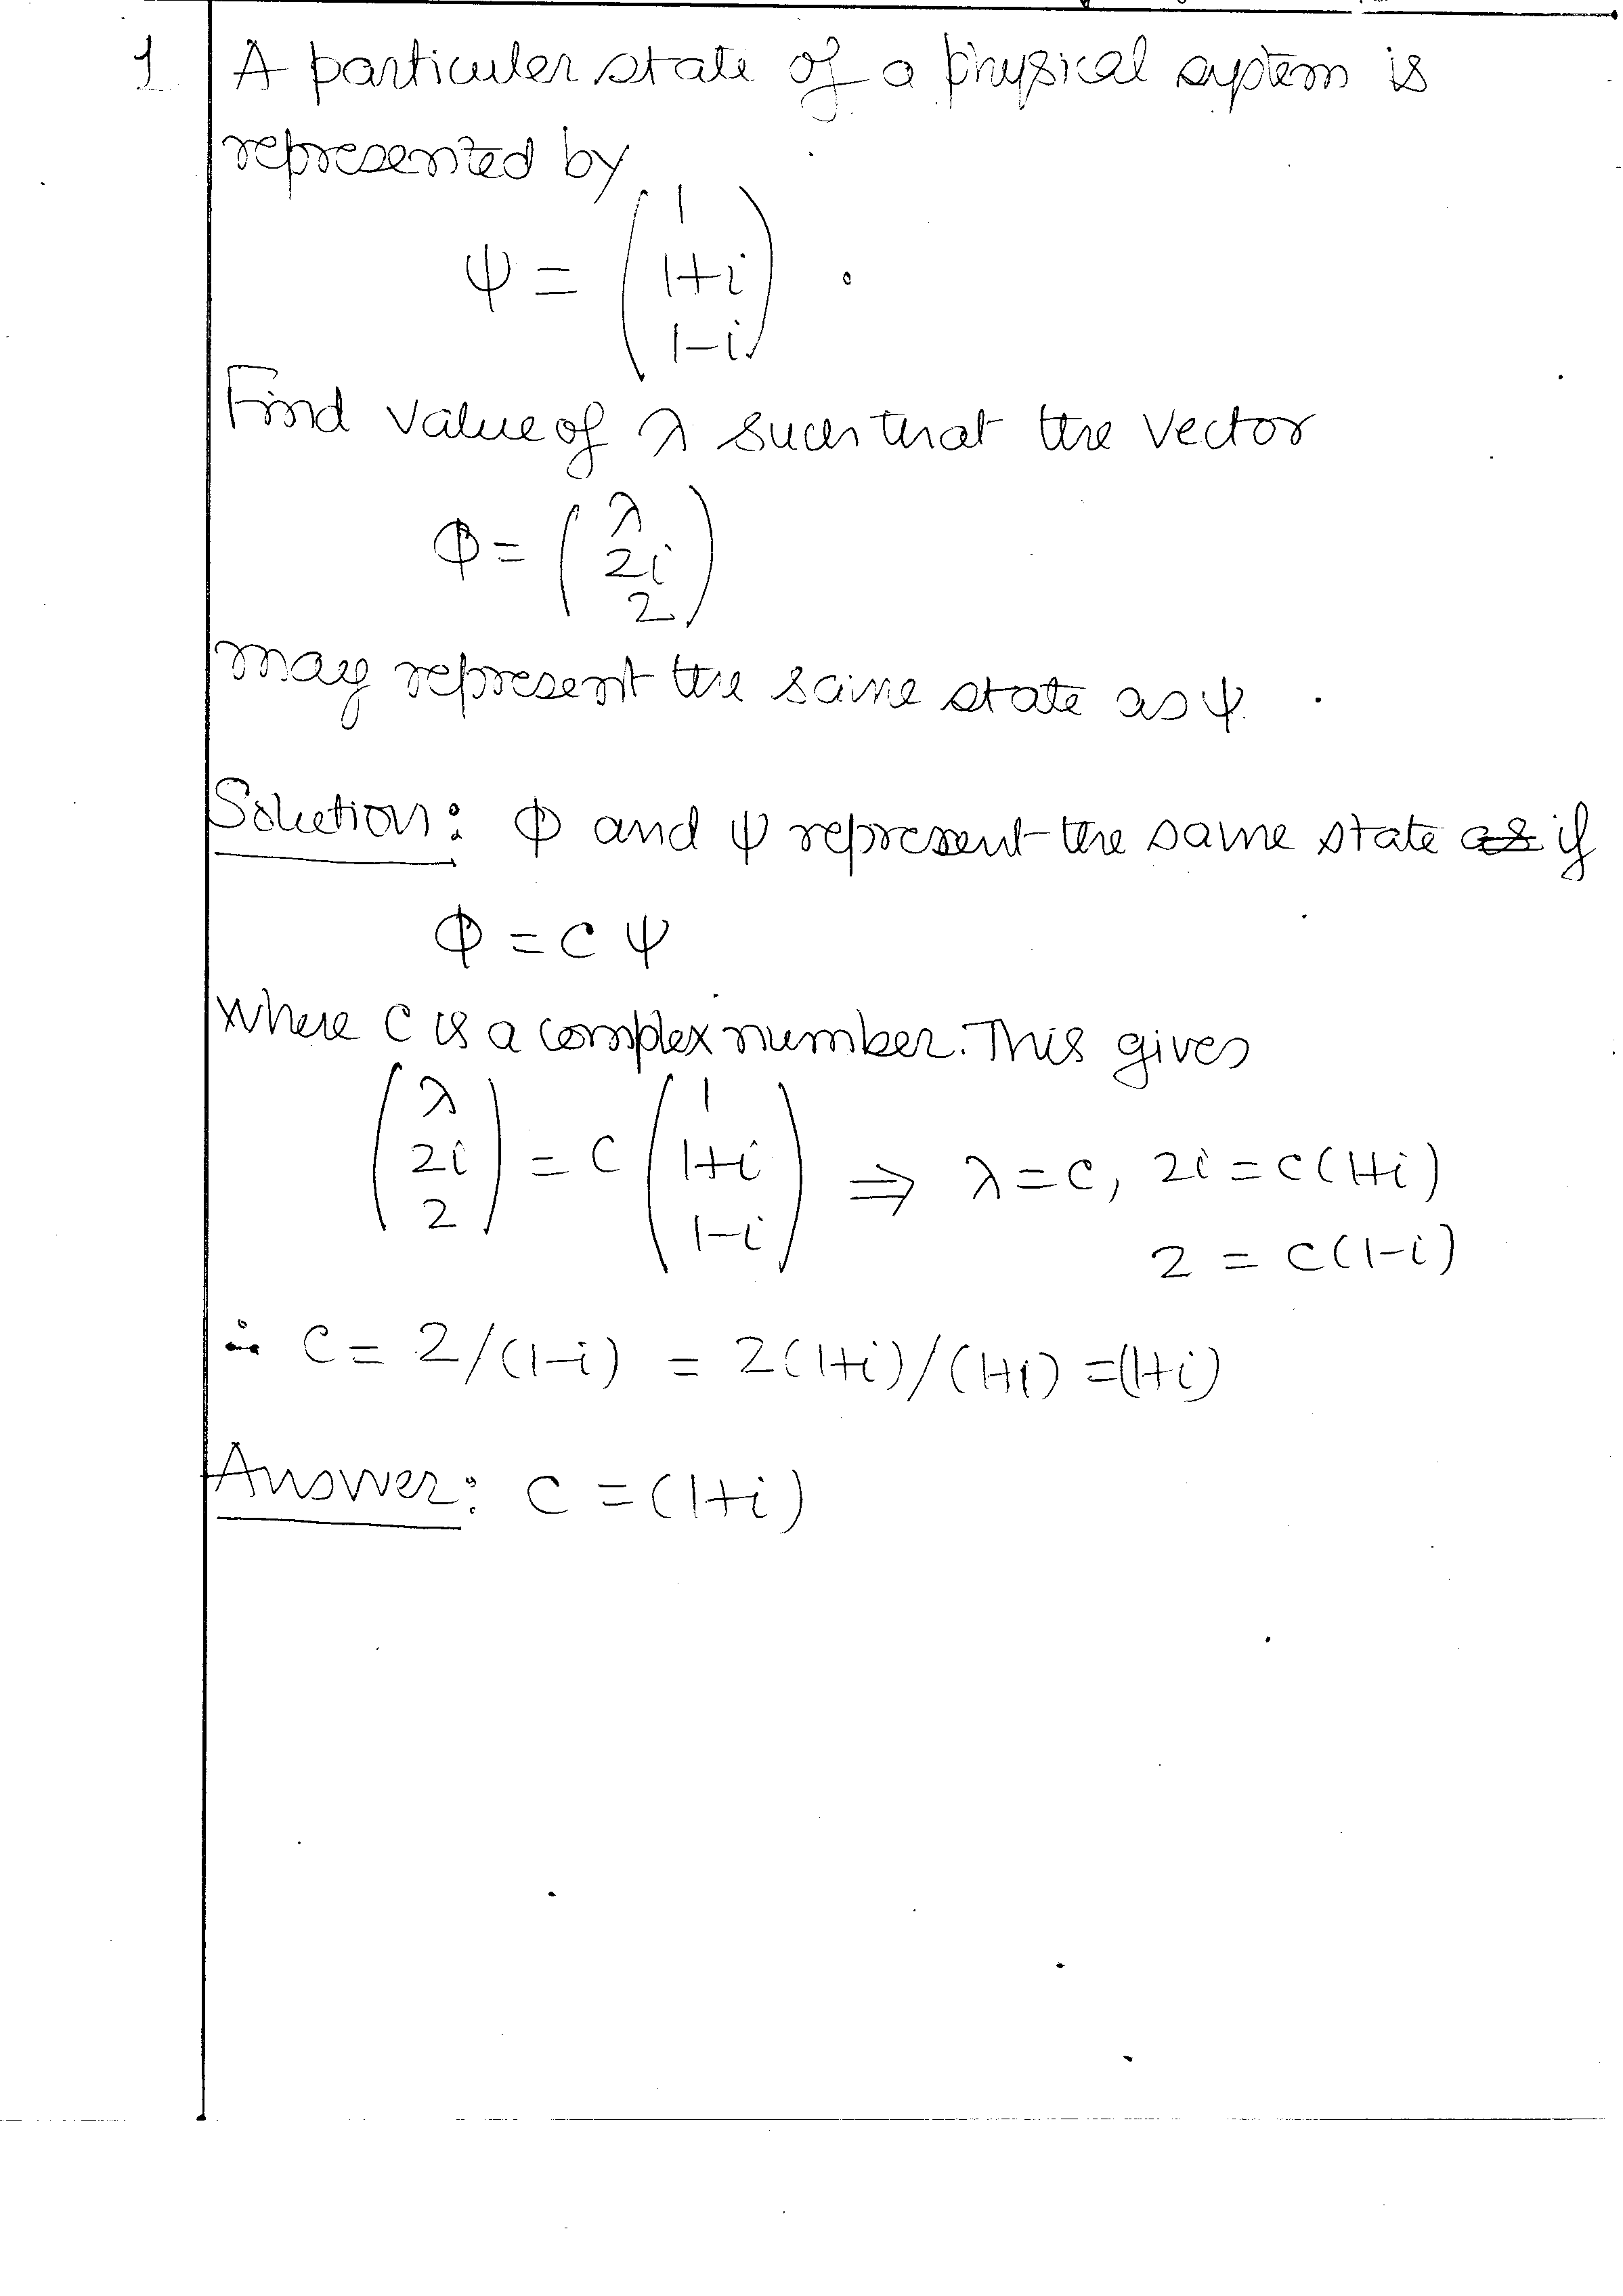 1 A particular state of a physical system is
represented by
ψ = ( 1
1+i
1-i ) .
Find value of λ such that the vector
Φ = ( λ
2i
2 )
may represent the same state as ψ .
Solution: Φ and ψ represent the same state as if
Φ = c ψ
where c is a complex number. This gives
( λ 2i 2 ) = c ( 1 1+i 1-i ) ⇒ λ = c, 2i = c(1+i)
2 = c(1-i)
∴ c = 2/(1-i) = 2(1+i)/(1+1) = (1+i)
Answer: c = (1+i)